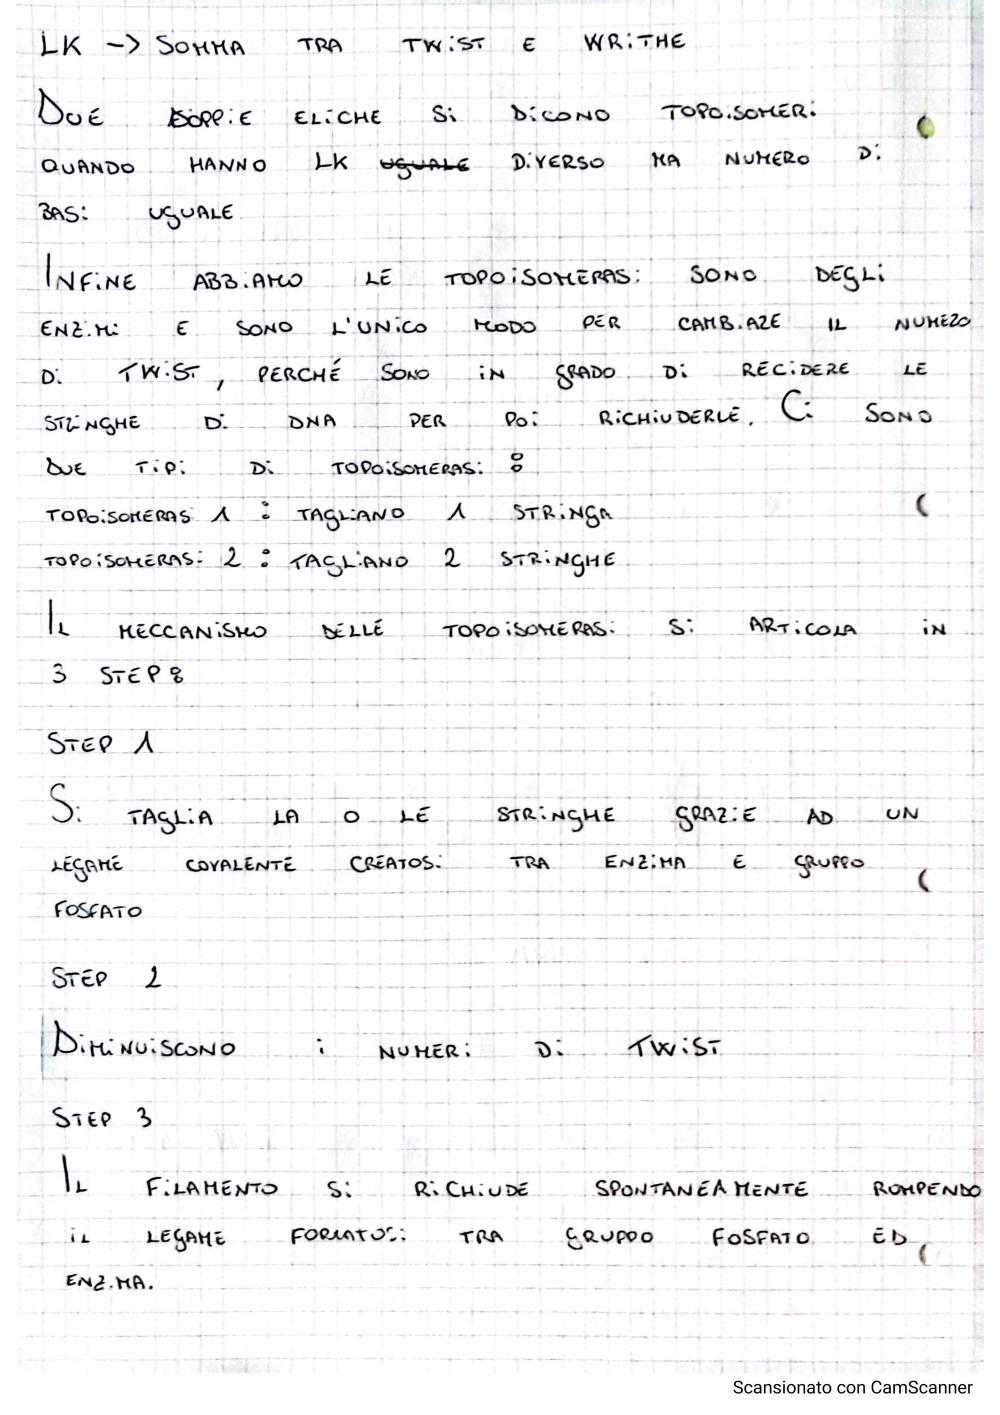 LK -> SOMMA TRA TWIST E WRITHE
DUE DOPPIE ELICHE SI DICONO TOPOISOMERI
QUANDO HANNO LK UGUALE DIVERSO MA NUMERO DI
BASI UGUALE
INFINE ABBIAMO LE TOPOISOMERASI SONO DEGLI
ENZIMI E SONO L'UNICO MODO PER CAMBIARE IL NUMERO
DI TWIST, PERCHÉ SONO IN GRADO DI RECIDERE LE
STRINGHE DI DNA PER POI RICHIUDERLE. CI SONO
DUE TIPI DI TOPOISOMERASI:
TOPOISOMERASI 1 : TAGLIANO 1 STRINGA
TOPOISOMERASI 2 : TAGLIANO 2 STRINGHE
IL MECCANISMO DELLE TOPOISOMERASI SI ARTICOLA IN
3 STEP:
STEP 1
SI TAGLIA LA O LE STRINGHE GRAZIE AD UN
LEGAME COVALENTE CREATOSI TRA ENZIMA E GRUPPO
FOSFATO
STEP 2
DIMINUISCONO I NUMERI DI TWIST
STEP 3
IL FILAMENTO SI RICHIUDE SPONTANEAMENTE ROMPENDO
IL LEGAME FORMATOSI TRA GRUPPO FOSFATO ED
ENZIMA.
Scansionato con CamScanner